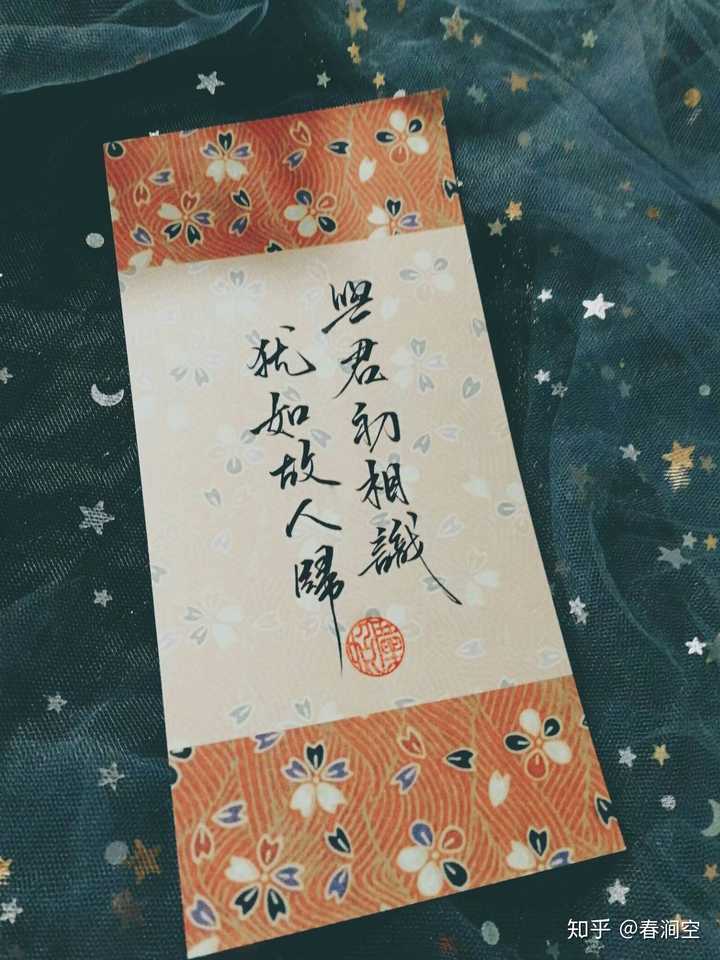 與君初相識
犹如故人歸
知乎 @春涧空